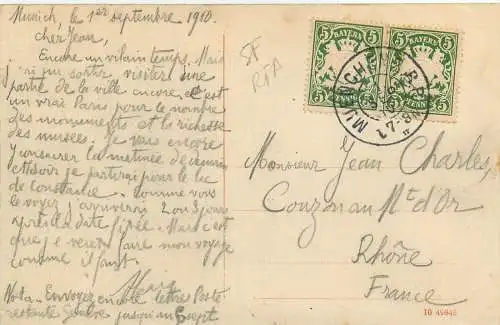 Munich, le 1er septembre 1910.
Cher Jean,
Encore un vilain temps. Mais
j'ai pu sortir visiter une
partie de la ville encore. C'est
un vrai Paris pour le nombre
des monuments et la richesse
des musées. Je vais encore
y consacrer la matinée de demain
et le soir je partirai pour le lac
de Constance. Comme vous
le voyez j'arriverai 2 ou 3 jours
après la date fixée. Mais c'est
que je veux faire mon voyage
comme il faut.
Nota - Envoyez encore lettre Poste
restante Genève jusqu'au 5 sept
SF
RTA
5 BAYERN 5
5 PFENN 5
5 BAYERN 5
5 PFENN 5
MÜNCHEN
Monsieur Jean Charles,
Couzon au Mt d'Or
Rhône
France
10 49846